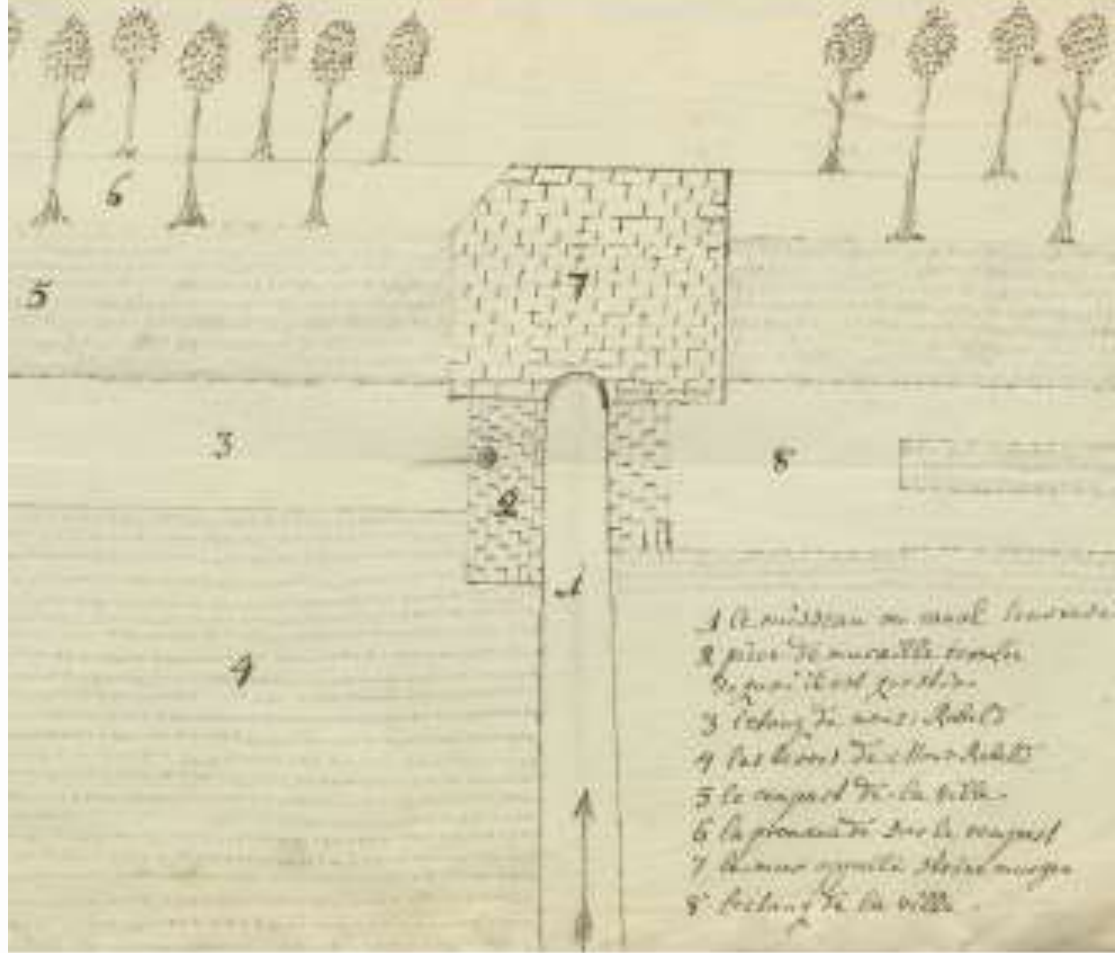 6
5
7
3
8
2
1
4
1 le ruisseau ou canal
2 pièce de muraille
de quoi il est question
3 l'étang de
4 les terres de
5 le rempart de la ville
6 la promenade sur le rempart
7 le mur appellé
8 l'étang de la ville